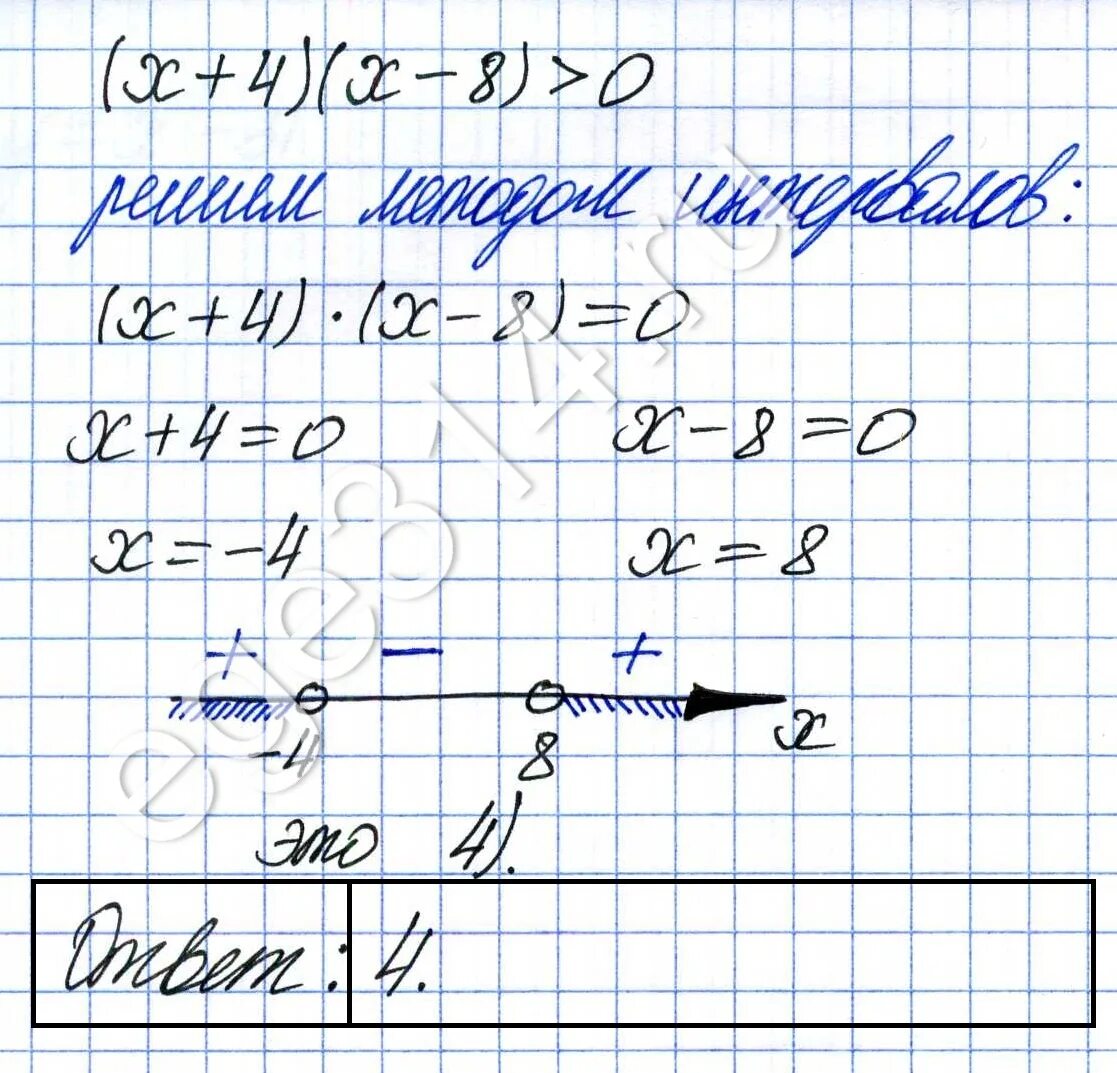 (x+4)(x-8)>0
решим методом интервалов:
(x+4)·(x-8)=0
x+4=0 x-8=0
x=-4 x=8
+ − +
-4 8 x
это 4).
Ответ: 4.
ege314.ru